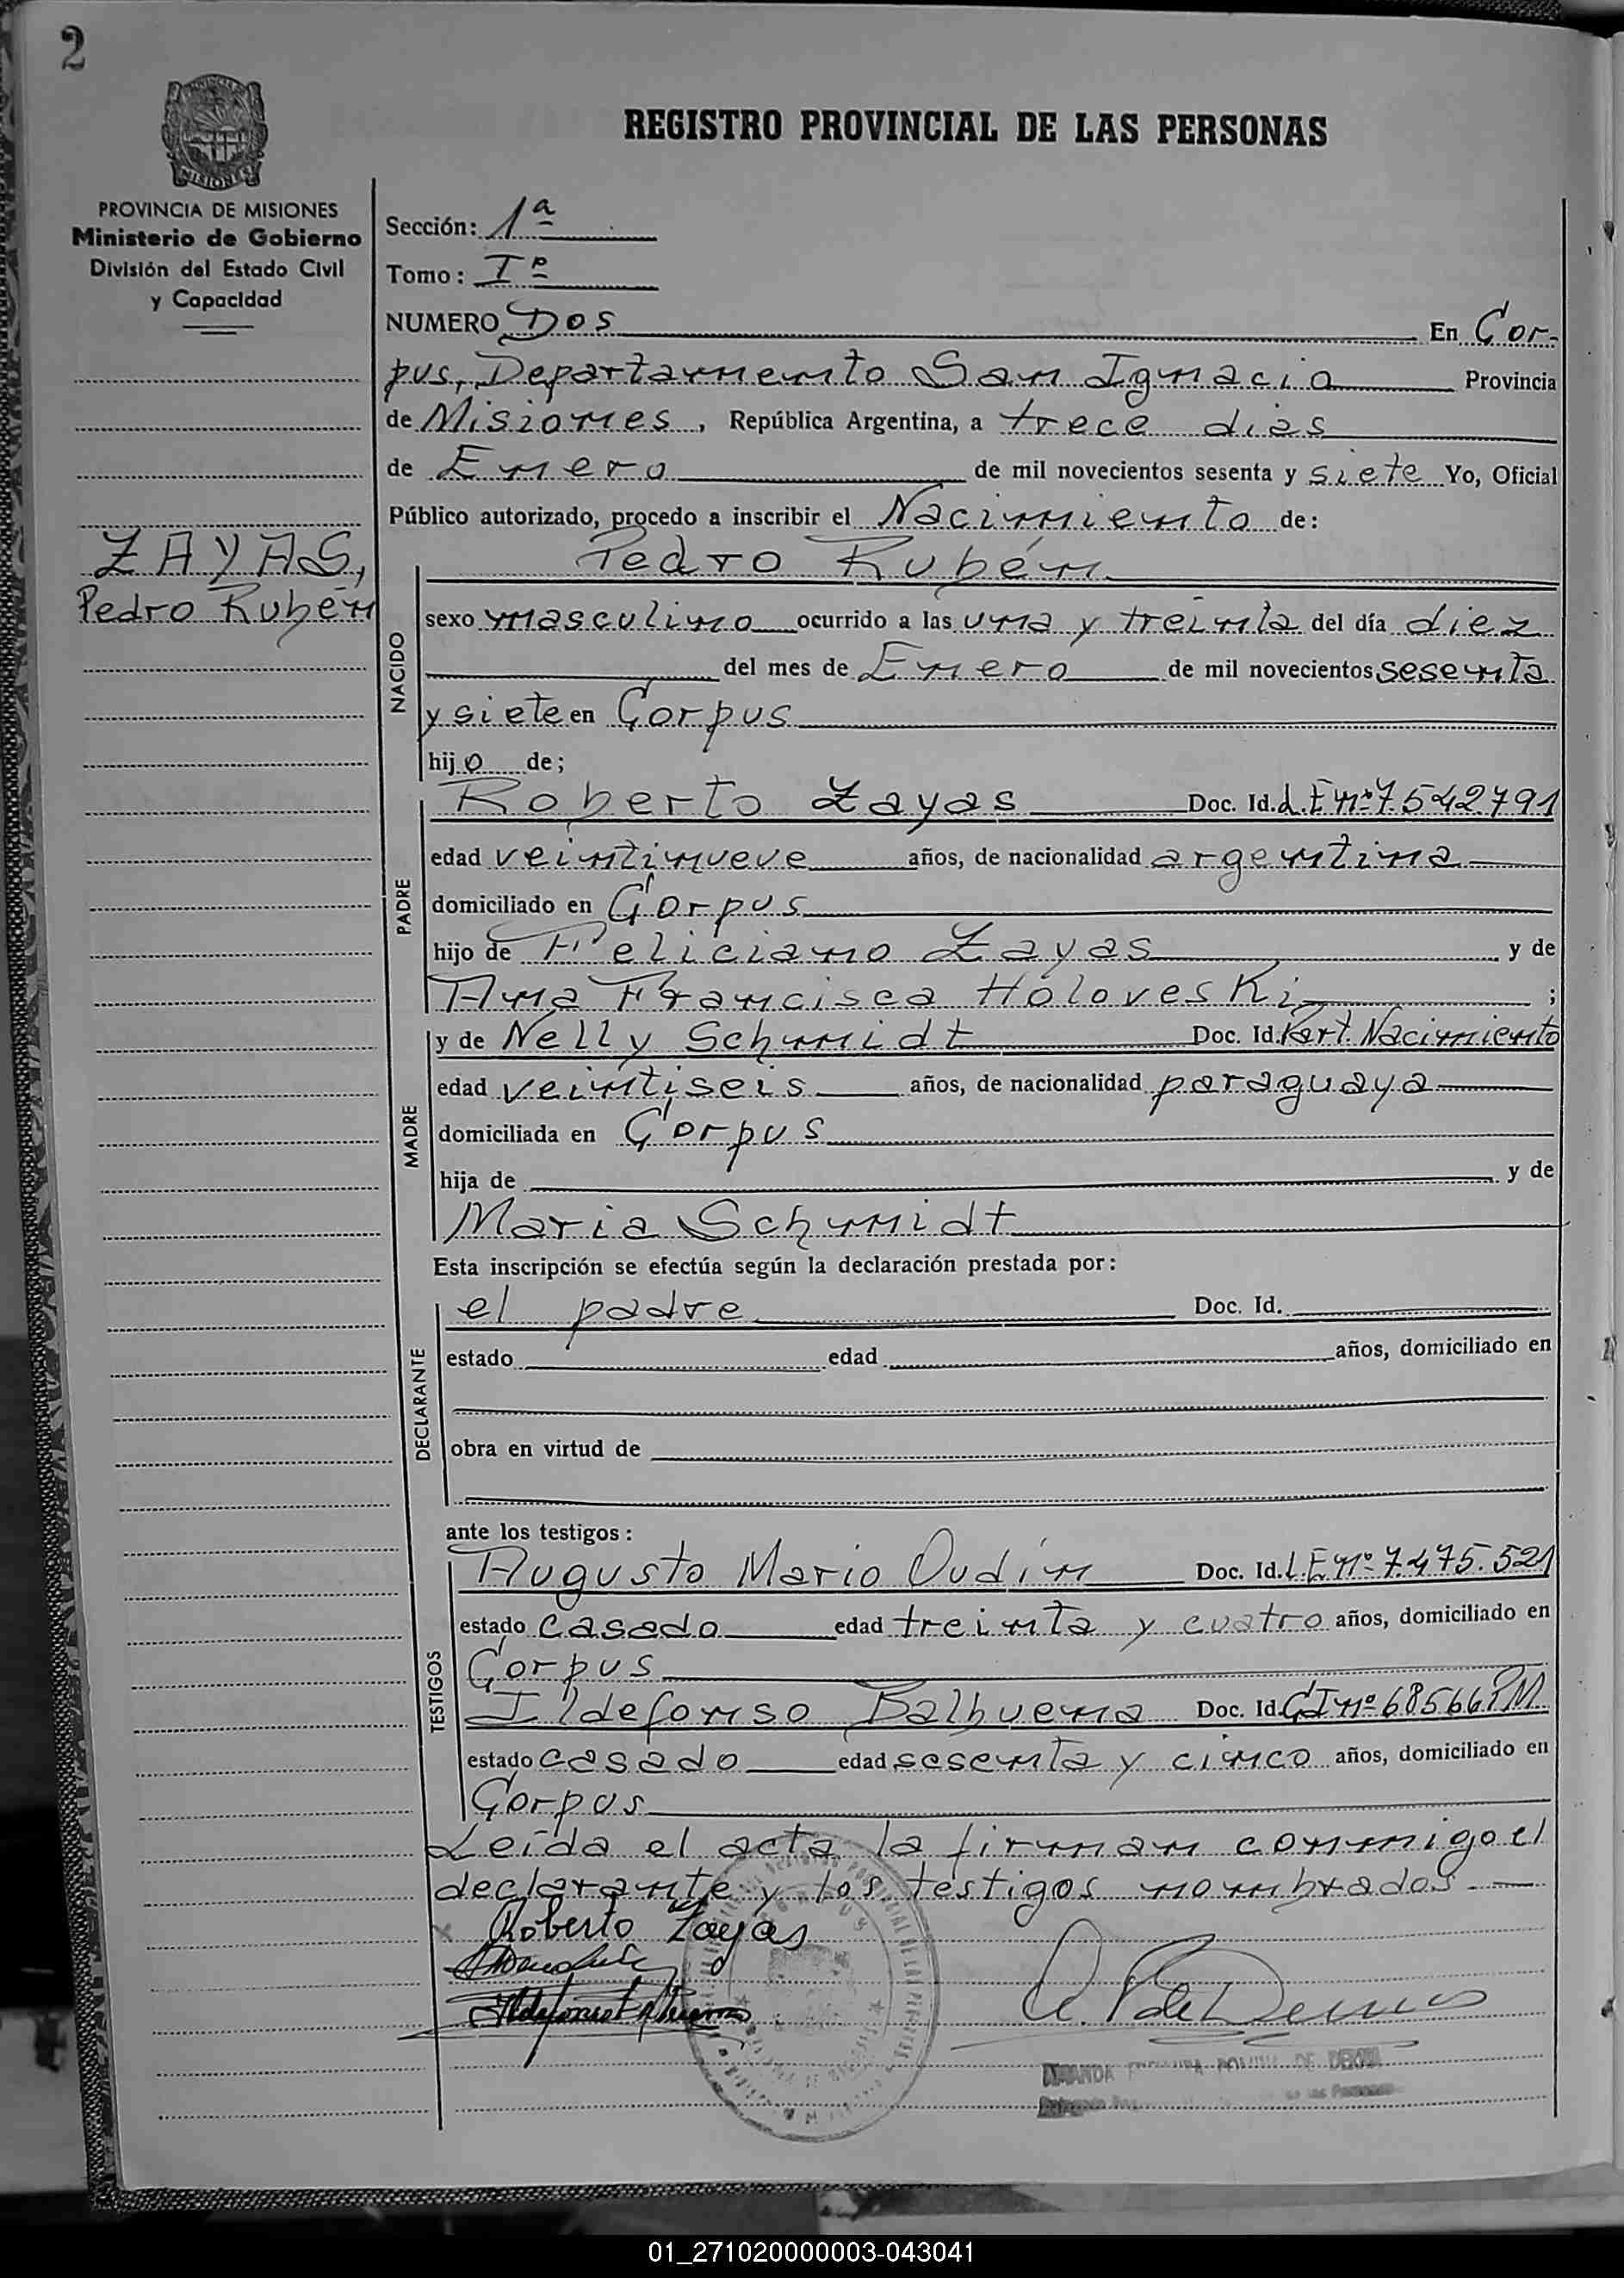 2
REGISTRO PROVINCIAL DE LAS PERSONAS
MISIONES
PROVINCIA DE MISIONES
Ministerio de Gobierno
División del Estado Civil
y Capacidad
ZAYAS,
Pedro Rubén
Sección: 1ª
Tomo: Iº
NUMERO Dos En Cor-
pus, Departamento San Ignacio Provincia
de Misiones, República Argentina, a trece dias
de Enero de mil novecientos sesenta y siete Yo, Oficial
Público autorizado, procedo a inscribir el Nacimiento de:
NACIDO
Pedro Rubén
sexo masculino ocurrido a las una y treinta del día diez
del mes de Enero de mil novecientos sesenta
y siete en Corpus
hijo de;
PADRE
Roberto Zayas Doc. Id. L.E nº 7.542791
edad veintinueve años, de nacionalidad argentina
domiciliado en Corpus
hijo de Feliciano Zayas y de
Ana Francisca Holoveski ;
MADRE
y de Nelly Schmidt Doc. Id. Part. Nacimiento
edad veintiseis años, de nacionalidad paraguaya
domiciliada en Corpus
hija de y de
Maria Schmidt
Esta inscripción se efectúa según la declaración prestada por:
DECLARANTE
el padre Doc. Id.
estado edad años, domiciliado en
obra en virtud de
ante los testigos:
TESTIGOS
Augusto Mario Dudín Doc. Id. L.E nº 7.475.521
estado casado edad treinta y cuatro años, domiciliado en
Corpus
Ildefonso Balbuena Doc. Id. C.I nº 68566 PM
estado casado edad sesenta y cinco años, domiciliado en
Corpus
Leída el acta la firman conmigo el
declarante y los testigos nombrados.
Roberto Zayas
DE
01_271020000003-043041